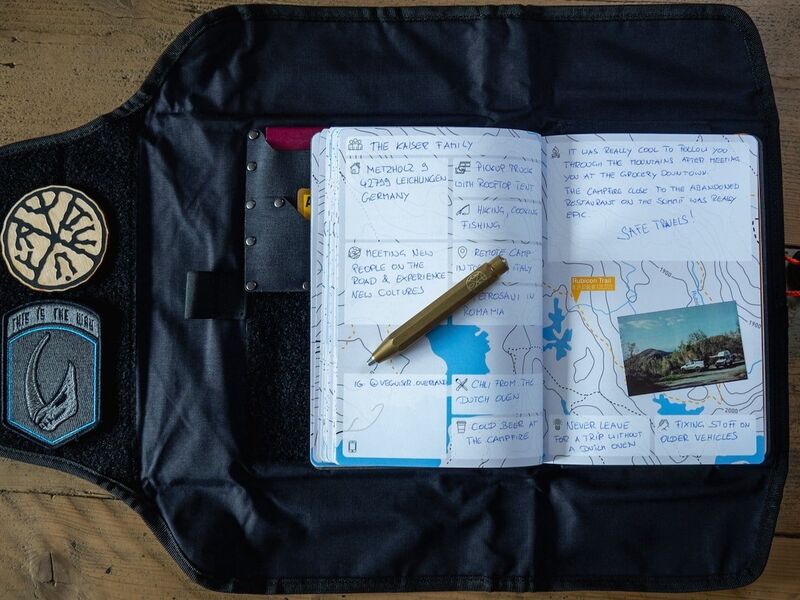 THIS IS THE WAY
THE KAISER FAMILY
METZHOLZ 9
42799 LEICHLINGEN
GERMANY
PICKUP TRUCK
WITH ROOFTOP TENT
HIKING, COOKING
FISHING
MEETING NEW
PEOPLE ON THE
ROAD & EXPERIENCE
NEW CULTURES
REMOTE CAMP
ITALY
PETROSANI IN
ROMAMIA
CHILI FROM THE
DUTCH OVEN
COLD BEER AT
THE CAMPFIRE
IT WAS REALLY COOL TO FOLLOW YOU
THROUGH THE MOUNTAINS AFTER MEETING
YOU AT THE GROCERY DOWNTOWN.
THE CAMPFIRE CLOSE TO THE ABANDONED
RESTAURANT ON THE SUMMIT WAS REALLY
EPIC.
SAFE TRAVELS!
Rubicon Trail
1900
1900
2000
NEVER LEAVE
FOR A TRIP WITHOUT
A DUTCH OVEN
FIXING STUFF ON
OLDER VEHICLES